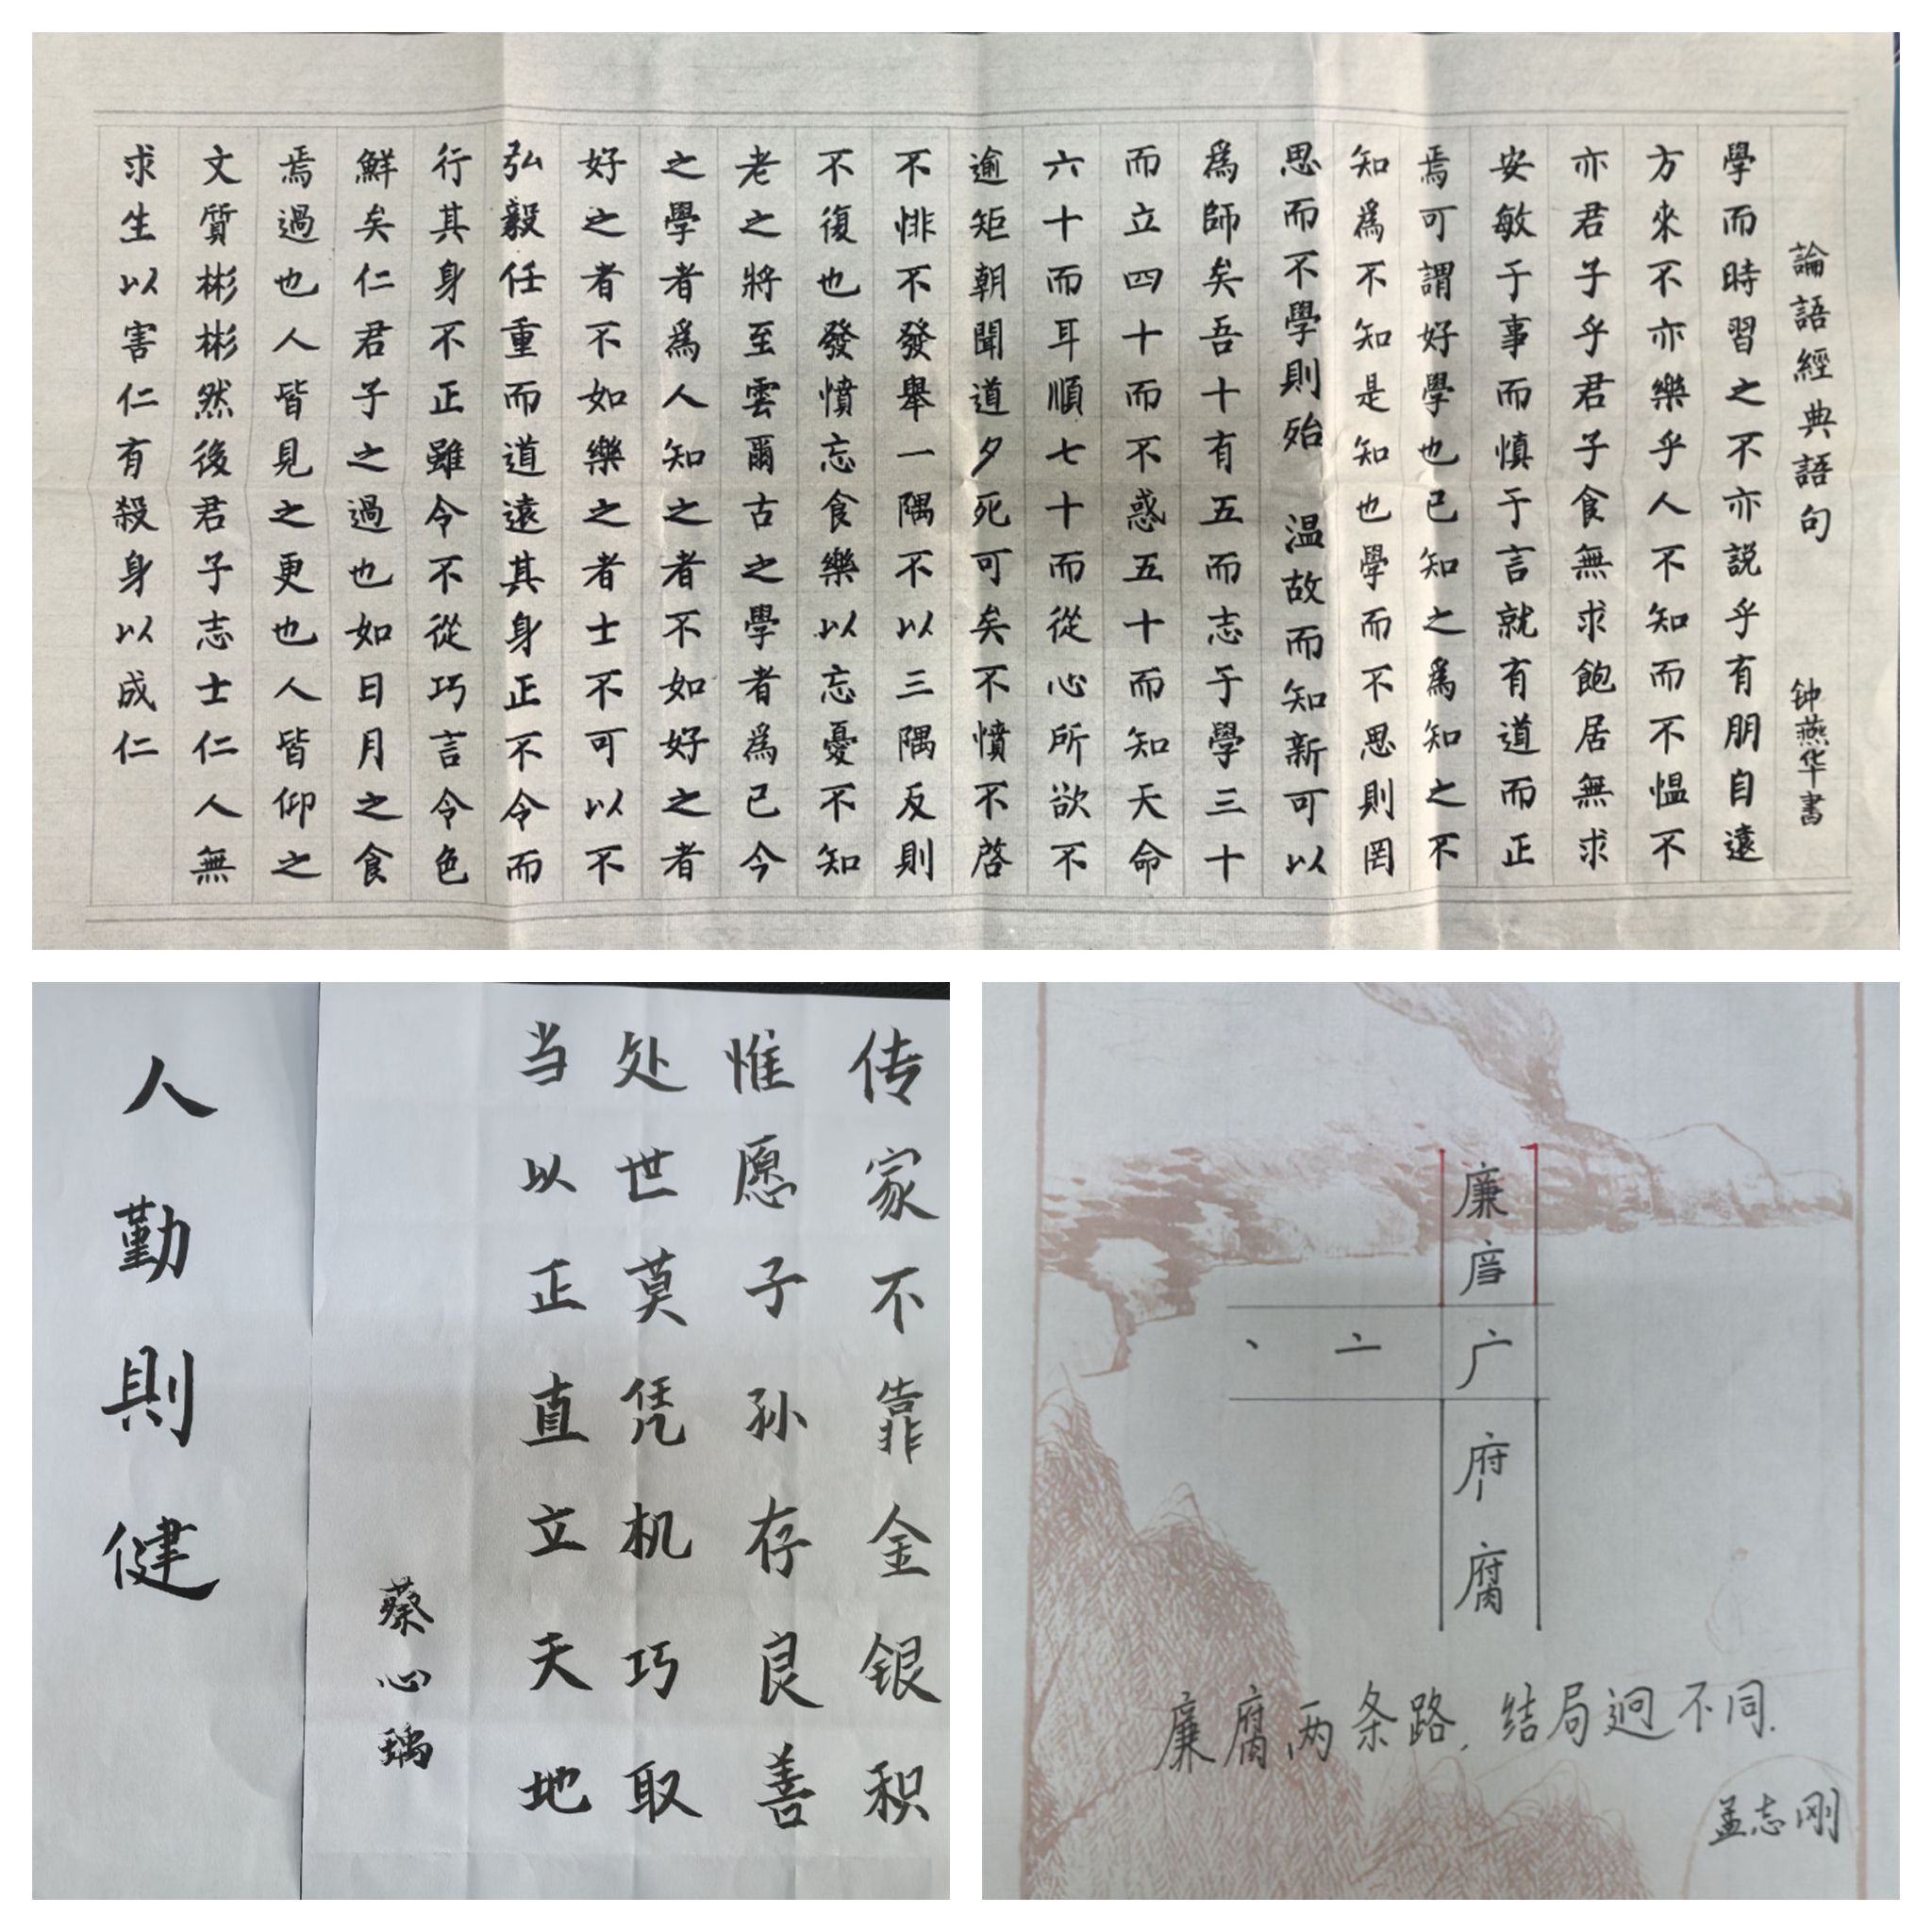 論語經典語句 钟燕华書
學而時習之不亦説乎有朋自遠
方來不亦樂乎人不知而不愠不
亦君子乎君子食無求飽居無求
安敏于事而慎于言就有道而正
焉可謂好學也已知之爲知之不
知爲不知是知也學而不思則罔
思而不學則殆 温故而知新可以
爲師矣吾十有五而志于學三十
而立四十而不惑五十而知天命
六十而耳順七十而從心所欲不
逾矩朝聞道夕死可矣不憤不啓
不悱不發舉一隅不以三隅反則
不復也發憤忘食樂以忘憂不知
老之將至雲爾古之學者爲已今
之學者爲人知之者不如好之者
好之者不如樂之者士不可以不
弘毅任重而道遠其身正不令而
行其身不正雖令不從巧言令色
鮮矣仁君子之過也如日月之食
焉過也人皆見之更也人皆仰之
文質彬彬然後君子志士仁人無
求生以害仁有殺身以成仁
传家不靠金银积
惟愿子孙存良善
处世莫凭机巧取
当以正直立天地
蔡心瑀
人勤則健
廉
丶 亠 广
府
腐
廉腐两条路,结局迥不同.
孟志刚